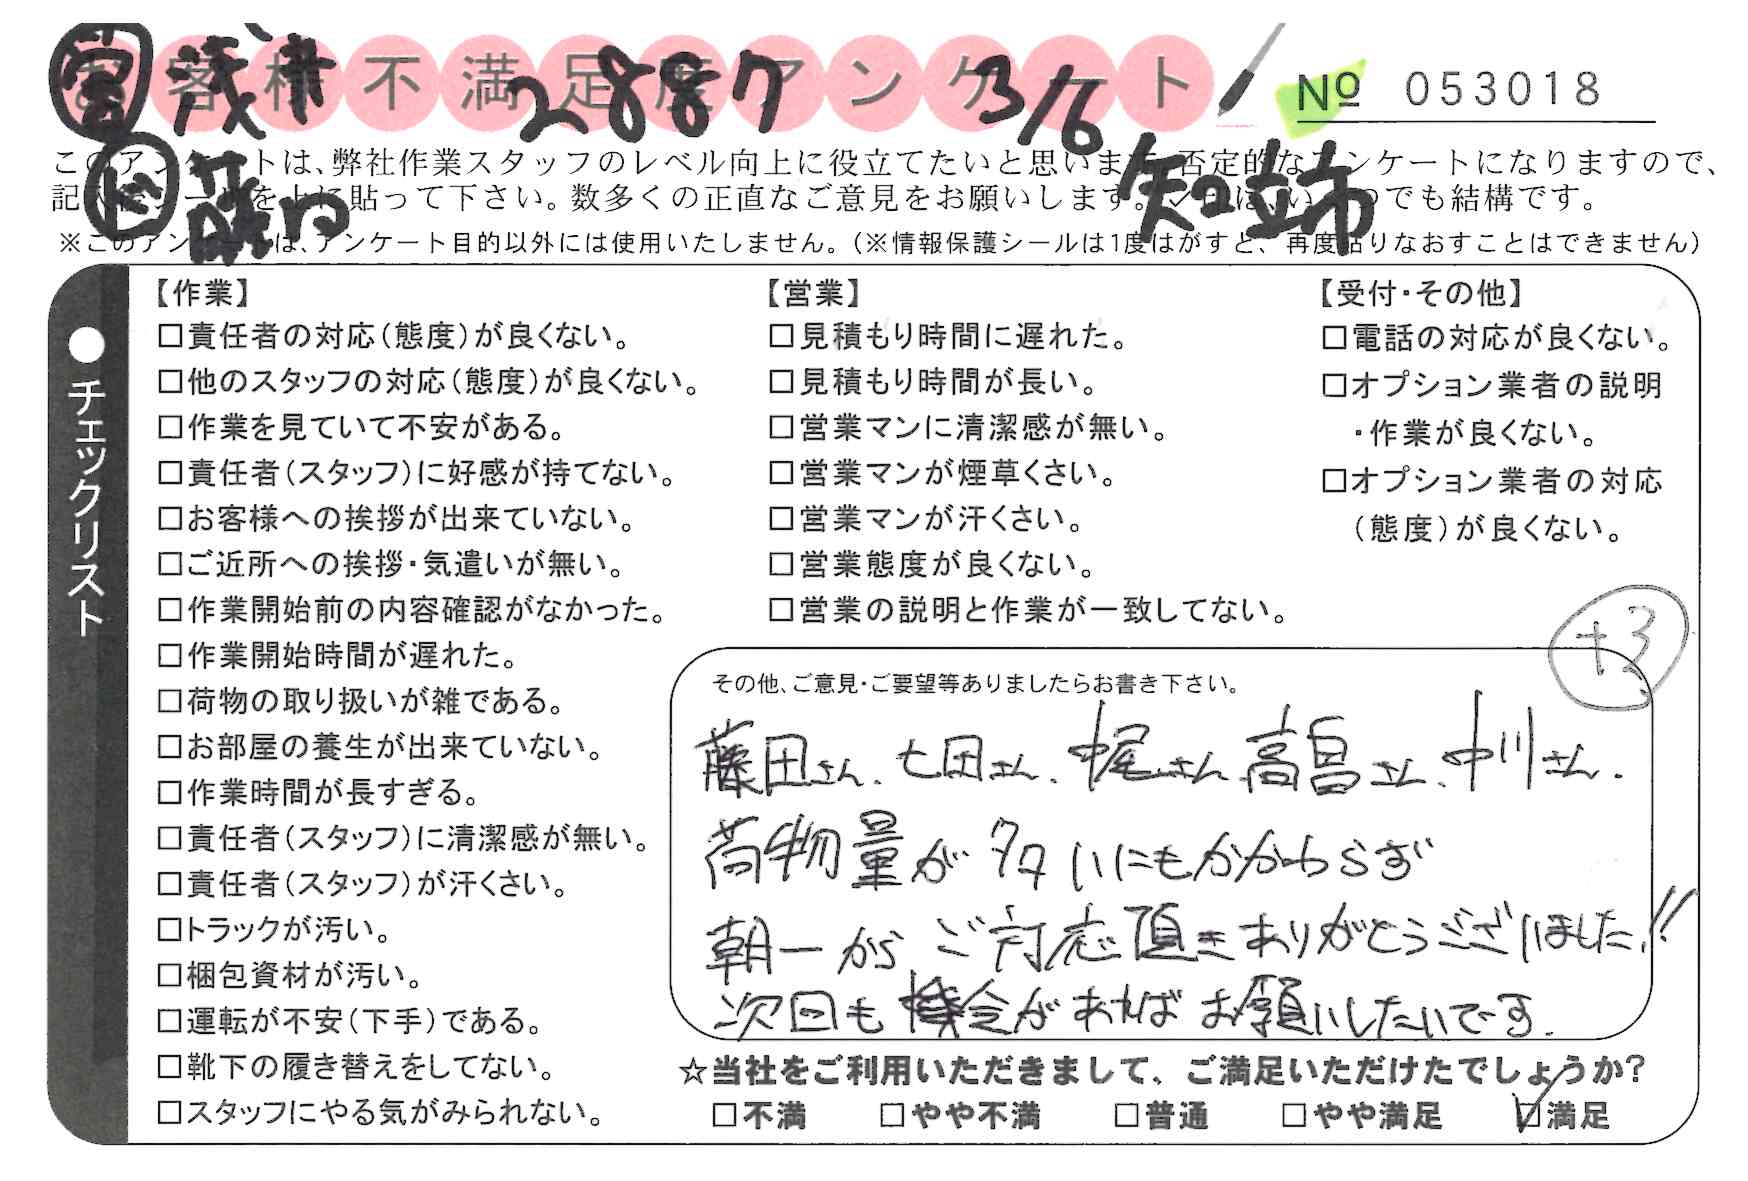 お客様不満足度アンケート
営 茂木 2887 3/6
№ 053018
このアンケートは、弊社作業スタッフのレベル向上に役立てたいと思います。否定的なアンケートになりますので、
ド 藤田 知立市
記入後シールを上に貼って下さい。数多くの正直なご意見をお願いします。✓印は、いくつでも結構です。
※このアンケートは、アンケート目的以外には使用いたしません。（※情報保護シールは1度はがすと、再度貼りなおすことはできません）
●チェックリスト
【作業】
□責任者の対応（態度）が良くない。
□他のスタッフの対応（態度）が良くない。
□作業を見ていて不安がある。
□責任者（スタッフ）に好感が持てない。
□お客様への挨拶が出来ていない。
□ご近所への挨拶・気遣いが無い。
□作業開始前の内容確認がなかった。
□作業開始時間が遅れた。
□荷物の取り扱いが雑である。
□お部屋の養生が出来ていない。
□作業時間が長すぎる。
□責任者（スタッフ）に清潔感が無い。
□責任者（スタッフ）が汗くさい。
□トラックが汚い。
□梱包資材が汚い。
□運転が不安（下手）である。
□靴下の履き替えをしてない。
□スタッフにやる気がみられない。
【営業】
□見積もり時間に遅れた。
□見積もり時間が長い。
□営業マンに清潔感が無い。
□営業マンが煙草くさい。
□営業マンが汗くさい。
□営業態度が良くない。
□営業の説明と作業が一致してない。
【受付・その他】
□電話の対応が良くない。
□オプション業者の説明
・作業が良くない。
□オプション業者の対応
（態度）が良くない。
+3
その他、ご意見・ご要望等ありましたらお書き下さい。
藤田さん、七田さん、梶尾さん、高畠さん、中川さん、
荷物量が多いにもかかわらず
朝一からご対応頂きありがとうございました!!
次回も機会があればお願いしたいです。
☆当社をご利用いただきまして、ご満足いただけたでしょうか?
□不満 □やや不満 □普通 □やや満足 ☑満足